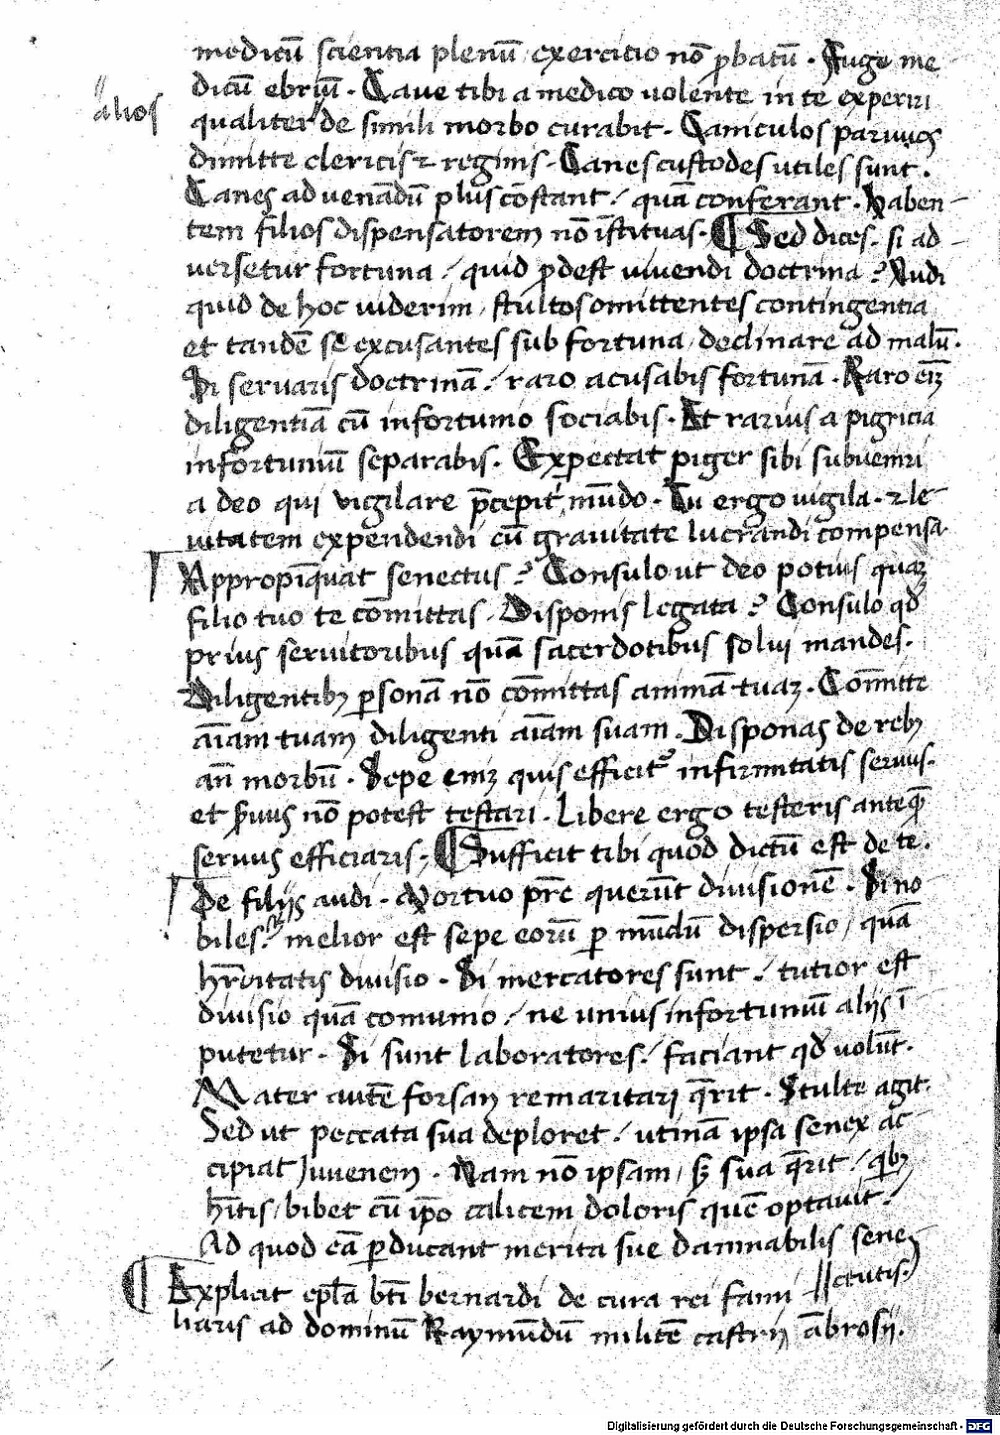 medicū scientia plenū exercicio nō ꝓbatū. Fuge me
dicū ebriū. Caue tibi a medico uolente in te experiri
alios
qualiter de simili morbo curabit. Caniculos paruus
dimitte clericis ⁊ reginis. Canes custodes utiles sunt.
Canes ad venādū plus cōstant / quā conferant. Haben
tem filios dispensatorem nō īstituas. ¶ Sed dices. si ad
uersetur fortuna / quid ꝓdest uiuendi doctrina? Audi
quid de hoc uiderim / stultos omittentes contingentia
et tandē se excusantes sub fortuna declinare ad malū.
Si seruaris doctrinā / raro acusabis fortunā. Raro eīz
diligentiā cū infortunio sociabis. Et rarius a pigricia
infortuniū separabis. Expectat piger sibi subueniri
a deo qui vigilare p̄cepit mūdo. Tu ergo uigila. ⁊ le
uitatem expendendi cū grauitate lucrandi compensa.
Appropīquat senectus? Consulo ut deo potius quaz
filio tuo te cōmittas. Disponis legata? Consulo qd̄
prius seruitoribus quā sacerdotibus solui mandes.
Diligentibꝫ ꝑsonā nō cōmittas animā tuaz. Cōmitte
aīam tuam diligenti aīam suam. Disponas de rebꝫ
an̄ morbū. Sepe eniz quis efficit᷑ infirmitatis seruus.
et ẜuus nō potest testari. Libere ergo testeris anteq̄
seruus efficiaris. ¶ Sufficit tibi quod dictū est de te.
De filijs audi. Mortuo pr̄e querūt diuisionē. Si no
biles / melior est sepe eorū ꝑ mūdū dispersio / quā
hr̄ditatis diuisio. Si mercatores sunt / tutior est
diuisio quā comunio / ne unius infortuniū alijs ī
putetur. Si sunt laboratores / faciant qd̄ uolūt.
Mater autē forsan remaritari q̄rit. Stulte agit.
Sed ut peccata sua deploret / utinā ipsa senex ac
cipiat Juuenem. Nam nō ipsam / ẜ sua q̄rit / qͥbꝫ
h̄itis / bibet cū ip̄o calicem doloris quē optauit.
Ad quod eā ꝑducant merita sue damnabilis sene
ctutis.
¶ Explicit ep̄la bt̄i bernardi de cura rei fami
liaris ad dominū Raymūdū militē castrij ābrosij.
Digitalisierung gefördert durch die Deutsche Forschungsgemeinschaft - DFG